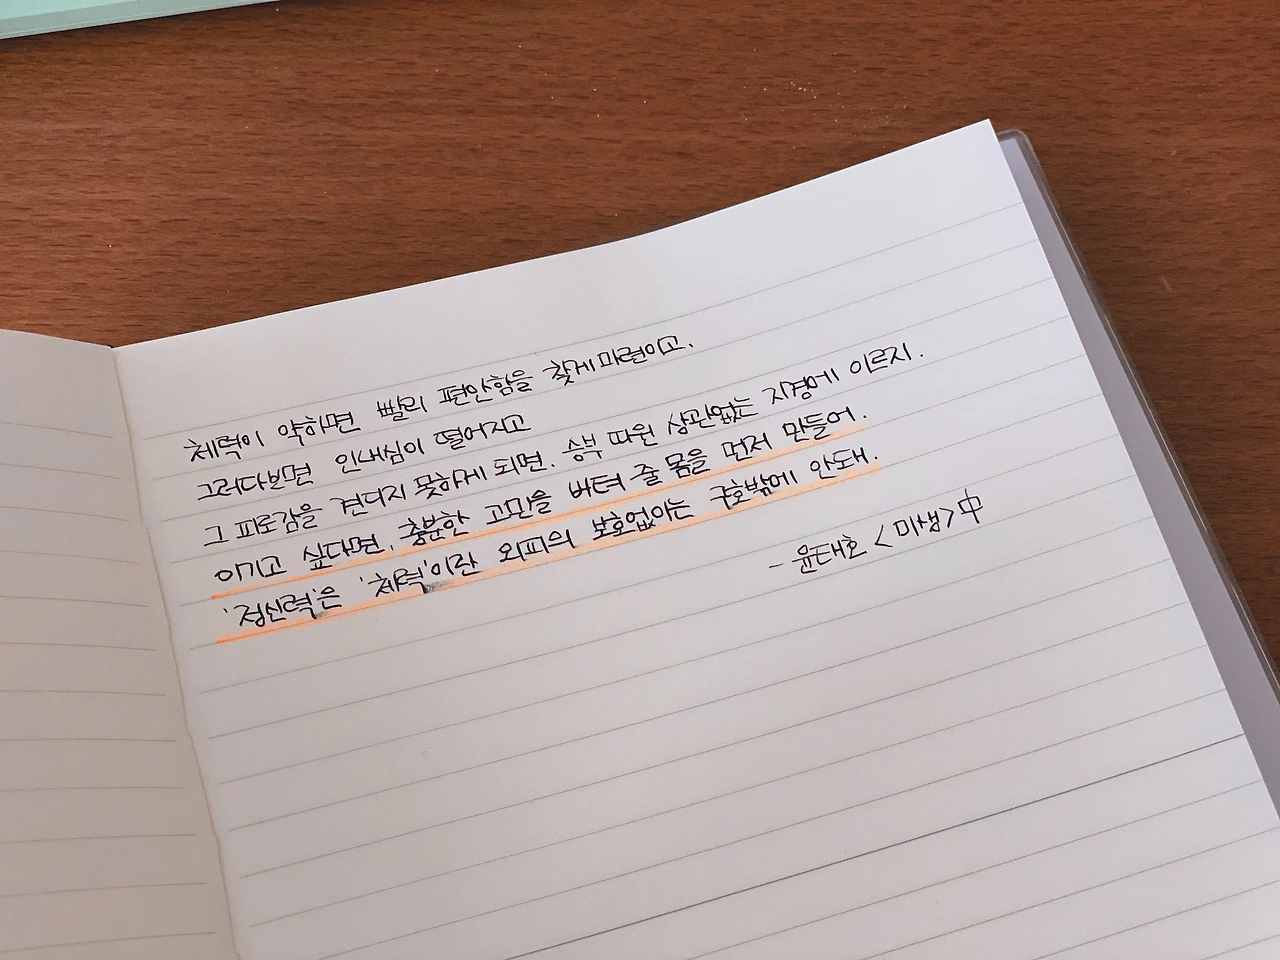 체력이 약하면 빨리 편안함을 찾게 마련이고,
그러다보면 인내심이 떨어지고
그 피로감을 견디지 못하게 되면, 승부 따윈 상관없는 지경에 이르지.
이기고 싶다면, 충분한 고민을 버텨 줄 몸을 먼저 만들어.
'정신력'은 '체력'이란 외피의 보호없이는 구호밖에 안돼.
- 윤태호 <미생> 中